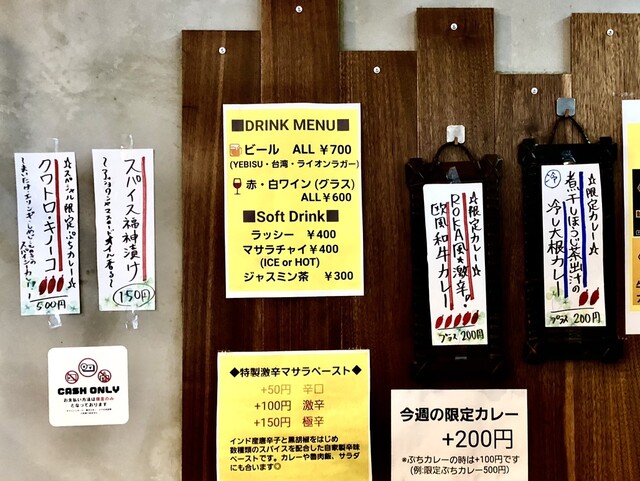 ☆スペシャル限定ぷちカレー☆
クワトロ・キノーコ
500円
スパイス福神漬け
150円
CASH ONLY
お支払い方法は現金のみ
となっております
■DRINK MENU■
ビール ALL ¥700
(YEBISU・台湾・ライオンラガー)
赤・白ワイン (グラス)
ALL ¥600
■Soft Drink■
ラッシー ¥400
マサラチャイ ¥400
(ICE or HOT)
ジャスミン茶 ¥300
◆特製激辛マサラペースト◆
+50円 辛口
+100円 激辛
+150円 極辛
インド産唐辛子と黒胡椒をはじめ
数種類のスパイスを配合した自家製辛味
ペーストです。カレーや魯肉飯、サラダ
にも合います◎
☆限定カレー☆
ROKA風★激辛!
欧風和牛カレー
プラス 200円
☆限定カレー☆
冷
煮干しほうじ茶出汁の
冷し大根カレー
プラス 200円
今週の限定カレー
+200円
※ぷちカレーの時は+100円です
(例:限定ぷちカレー500円)